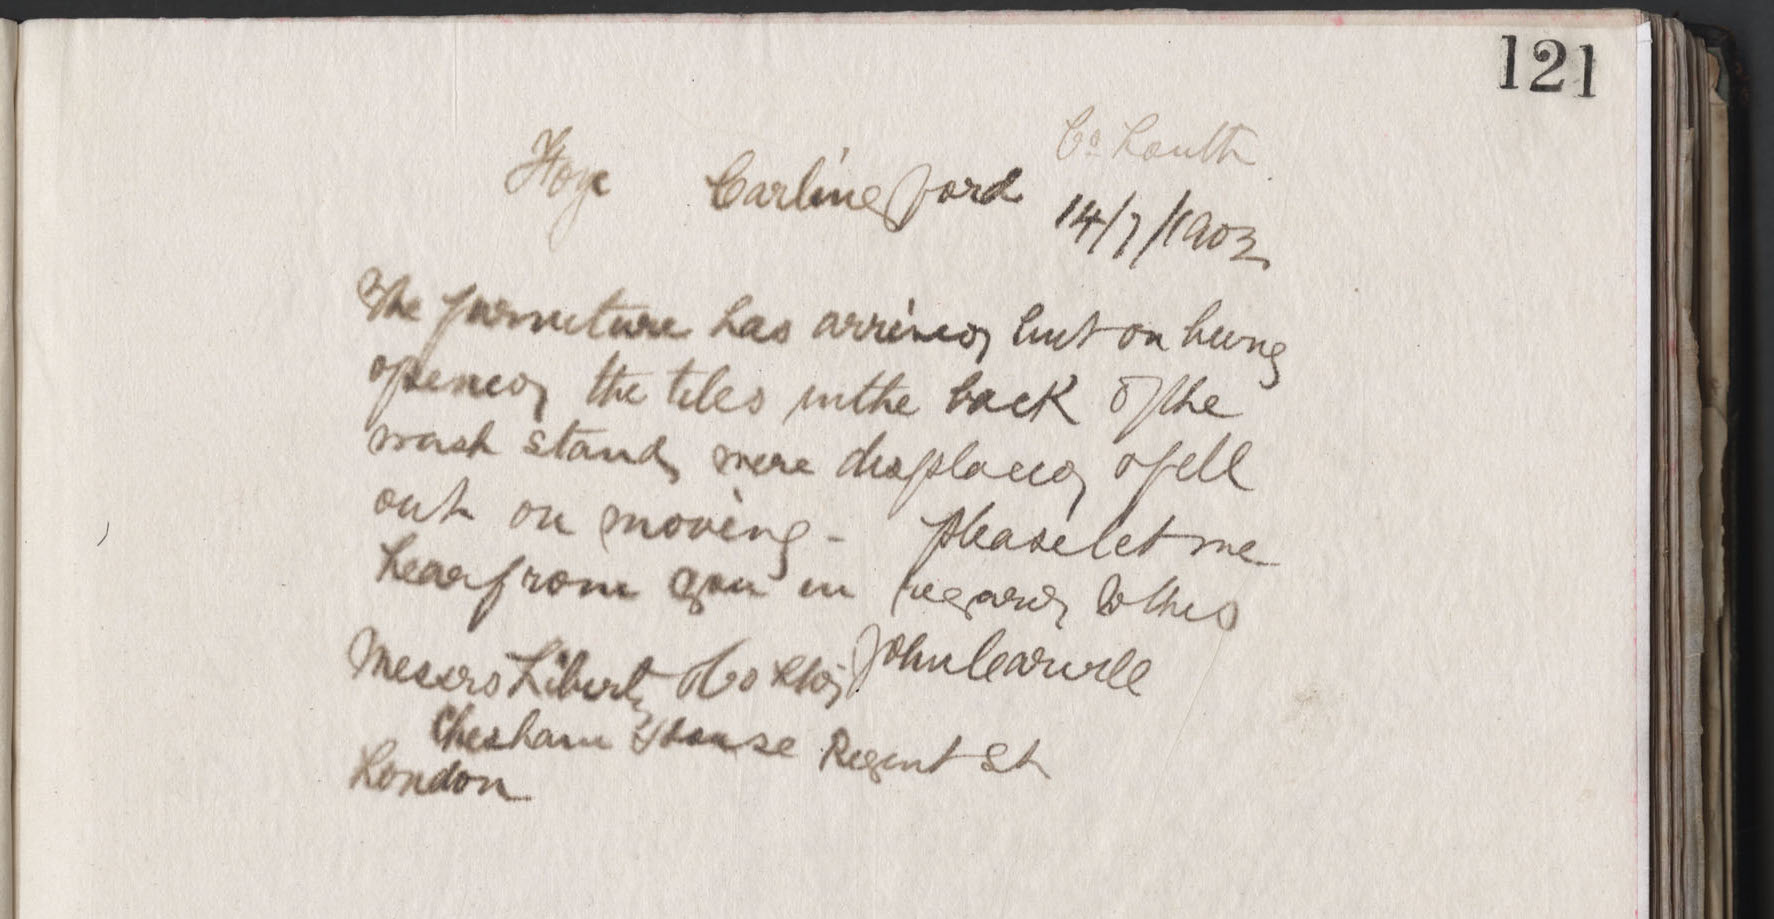 121
Co Louth
Carlingford
14/7/1903
The furniture has arrived, but on being
opened, the tiles in the back of the
wash stand, were displaced, & fell
out on moving - please let me
hear from you in regard, to this
John Carvill
Messrs Liberty & Co
Chesham House Regent St
London